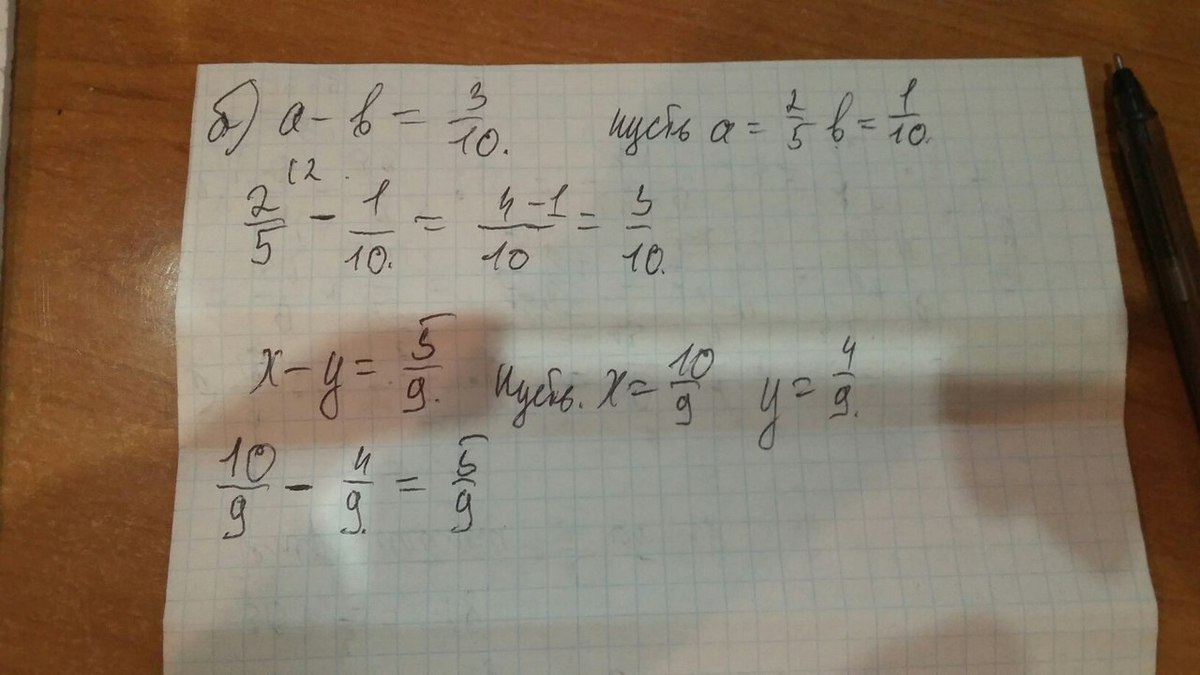 б) а - в = 3/10. пусть а = 2/5 в = 1/10.
2/5 (2 - 1/10. = 4-1/10 = 3/10.
x - y = 5/9. Пусть. x = 10/9 y = 4/9.
10/9 - 4/9. = 5/9